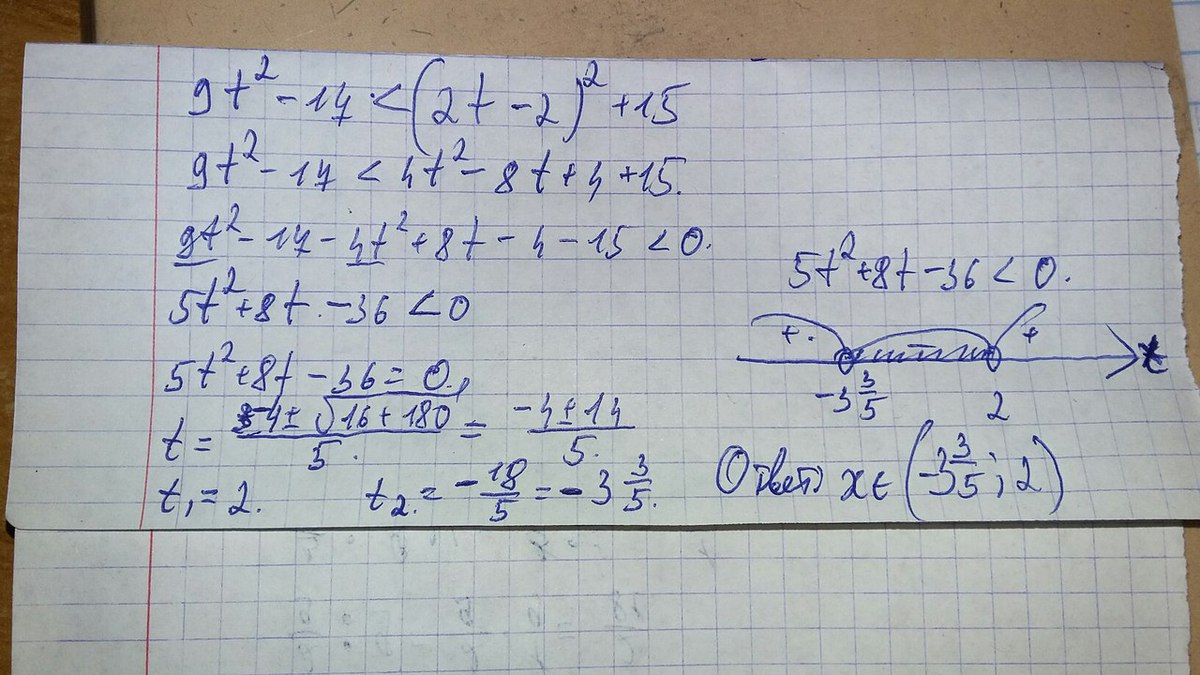 9t² - 17 < (2t - 2)² + 15
9t² - 17 < 4t² - 8t + 4 + 15.
9t² - 17 - 4t² + 8t - 4 - 15 < 0.
5t² + 8t - 36 < 0
5t² + 8t - 36 = 0.
t = (-4 ± √(16 + 180))/5 = (-4 ± 14)/5.
t₁ = 2. t₂ = -18/5 = -3 3/5.
5t² + 8t - 36 < 0.
+ + t
-3 3/5 2
Ответ: x ∈ (-3 3/5; 2)